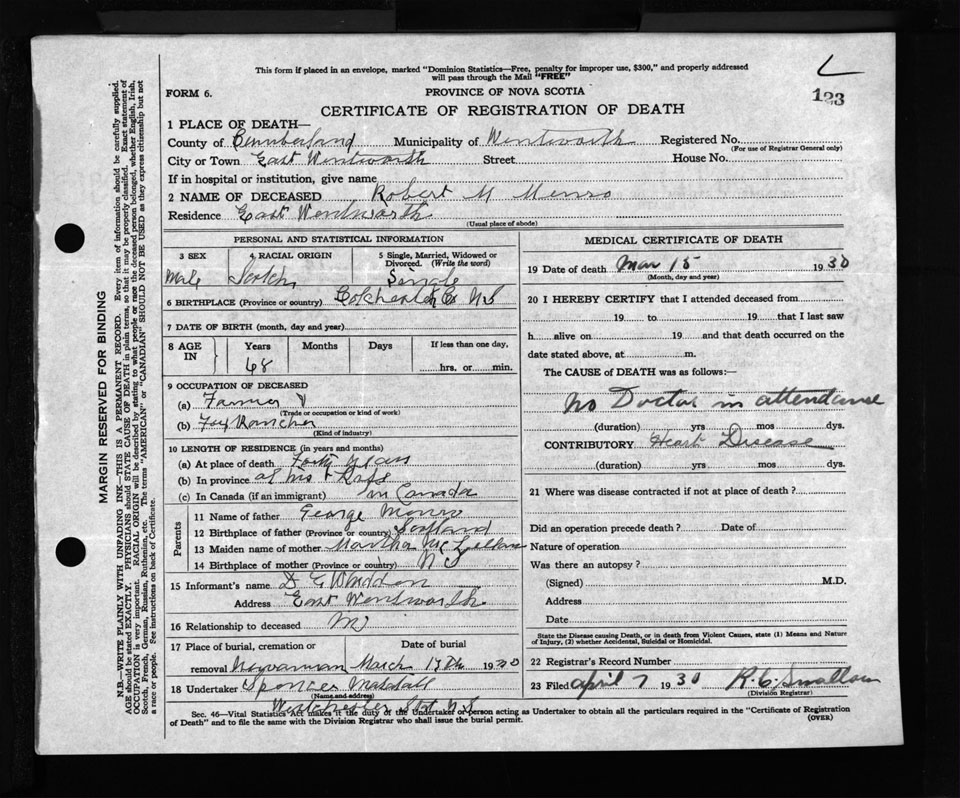 This form if placed in an envelope, marked "Dominion Statistics—Free, penalty for improper use, $300," and properly addressed
will pass through the Mail "FREE"
123
FORM 6.
PROVINCE OF NOVA SCOTIA
CERTIFICATE OF REGISTRATION OF DEATH
MARGIN RESERVED FOR BINDING
N.B.—WRITE PLAINLY WITH UNFADING INK—THIS IS A PERMANENT RECORD. Every item of information should be carefully supplied.
AGE should be stated EXACTLY. PHYSICIANS should STATE CAUSE OF DEATH in plain terms, so that it may be properly classified. Exact statement of
OCCUPATION is very important. RACIAL ORIGIN will be described by stating to what people or race the deceased person belonged, whether English, Irish,
Scotch, French, German, Russian, Ruthenian, etc. The terms "AMERICAN" or "CANADIAN" SHOULD NOT BE USED as they express citizenship but not
a race or people. See instructions on back of Certificate.
1 PLACE OF DEATH—
County of Cumberland Municipality of Wentworth Registered No.
(For use of Registrar General only)
City or Town East Wentworth Street House No.
If in hospital or institution, give name
2 NAME OF DECEASED Robert M Menro
Residence East Wentworth
(Usual place of abode)
PERSONAL AND STATISTICAL INFORMATION
3 SEX 4 RACIAL ORIGIN 5 Single, Married, Widowed or Divorced. (Write the word)
Male Scotch Single
6 BIRTHPLACE (Province or country) Colchester Co N S
7 DATE OF BIRTH (month, day and year)
8 AGE IN Years Months Days If less than one day,
68 hrs. or min.
9 OCCUPATION OF DECEASED
(a) Farmer &
(Trade or occupation or kind of work)
(b) Fox Rancher
(Kind of industry)
10 LENGTH OF RESIDENCE (in years and months)
(a) At place of death Forty years
(b) In province
(c) In Canada (if an immigrant) in Canada
Parents
11 Name of father George Monro
12 Birthplace of father (Province or country) Scotland
13 Maiden name of mother Martha McLellan
14 Birthplace of mother (Province or country) N S
15 Informant's name D E Whidden
Address East Wentworth
16 Relationship to deceased
17 Place of burial, cremation or Date of burial
removal March 17th 1930
18 Undertaker Spencer
(Name and address)
Westchester Stat N S
MEDICAL CERTIFICATE OF DEATH
19 Date of death Mar 15 1930
(Month, day and year)
20 I HEREBY CERTIFY that I attended deceased from
19 to 19 that I last saw
h alive on 19 and that death occurred on
date stated above, at m.
The CAUSE of DEATH was as follows:—
No Doctor in attendance
(duration) yrs mos dys.
CONTRIBUTORY Heart Disease
(duration) yrs mos dys.
21 Where was disease contracted if not at place of death?
Did an operation precede death? Date of
Nature of operation
Was there an autopsy?
(Signed) M.D.
Address
Date
State the Disease causing Death, or in death from Violent Causes, state (1) Means and Nature
of Injury, (2) whether Accidental, Suicidal or Homicidal.
22 Registrar's Record Number
23 Filed April 7 1930 R. C. Smallman
(Division Registrar)
Sec. 46—Vital Statistics Act makes it the duty of the Undertaker or person acting as Undertaker to obtain all the particulars required in the "Certificate of Registration
of Death" and to file the same with the Division Registrar who shall issue the burial permit.
(OVER)